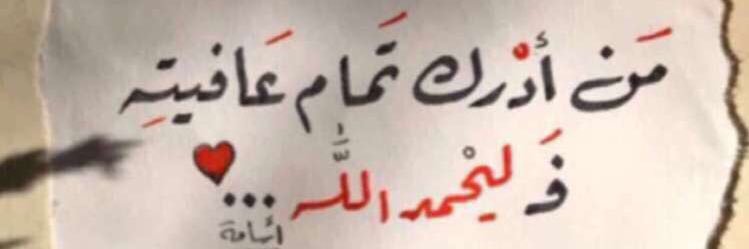 مَن أدْرك تَمام عَافيتهِ
فَ ليحْمد اللَّه ...
أسامة